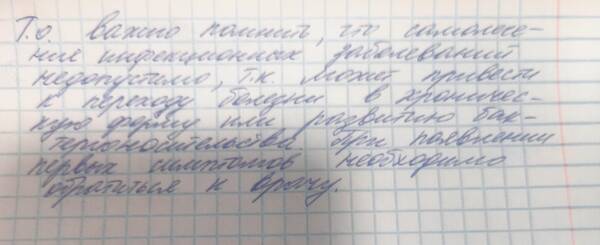 Т.о. важно помнить, что самолече-
ние инфекционных заболеваний
недопустимо, т.к. может привести
к переходу болезни в хроничес-
кую форму или развитию бак-
терионосительства. При появлении
первых симптомов необходимо
обратиться к врачу.